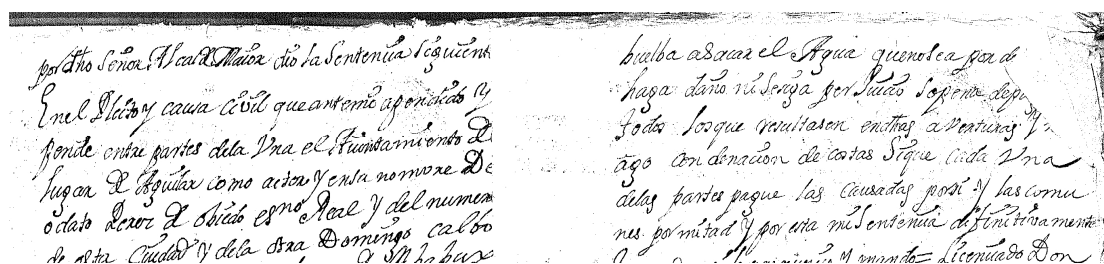 por dho Señor Alcalde Maior dio la Sentencia siguient
En el Pleito y causa civil que ante mi a pendido y
pende entre partes de la Una el Aiuntamiento D
lugar D Aguilar como actor y en su nombre D
Perez D obiedo essno Real y del numer
de esta Ciudad y de la otra Domingo calbo
buelba a sacar el Agua que no sea por d
haga daño ni tenga perjuicio so pena de pa
todos los que resultasen en dhas aventuras y
ago condenacion de costas si que cada Una
de las partes pague las causadas por si y las comu
nes por mitad y por esta mi sentencia difinitivamente
y mando = Licenciado Don